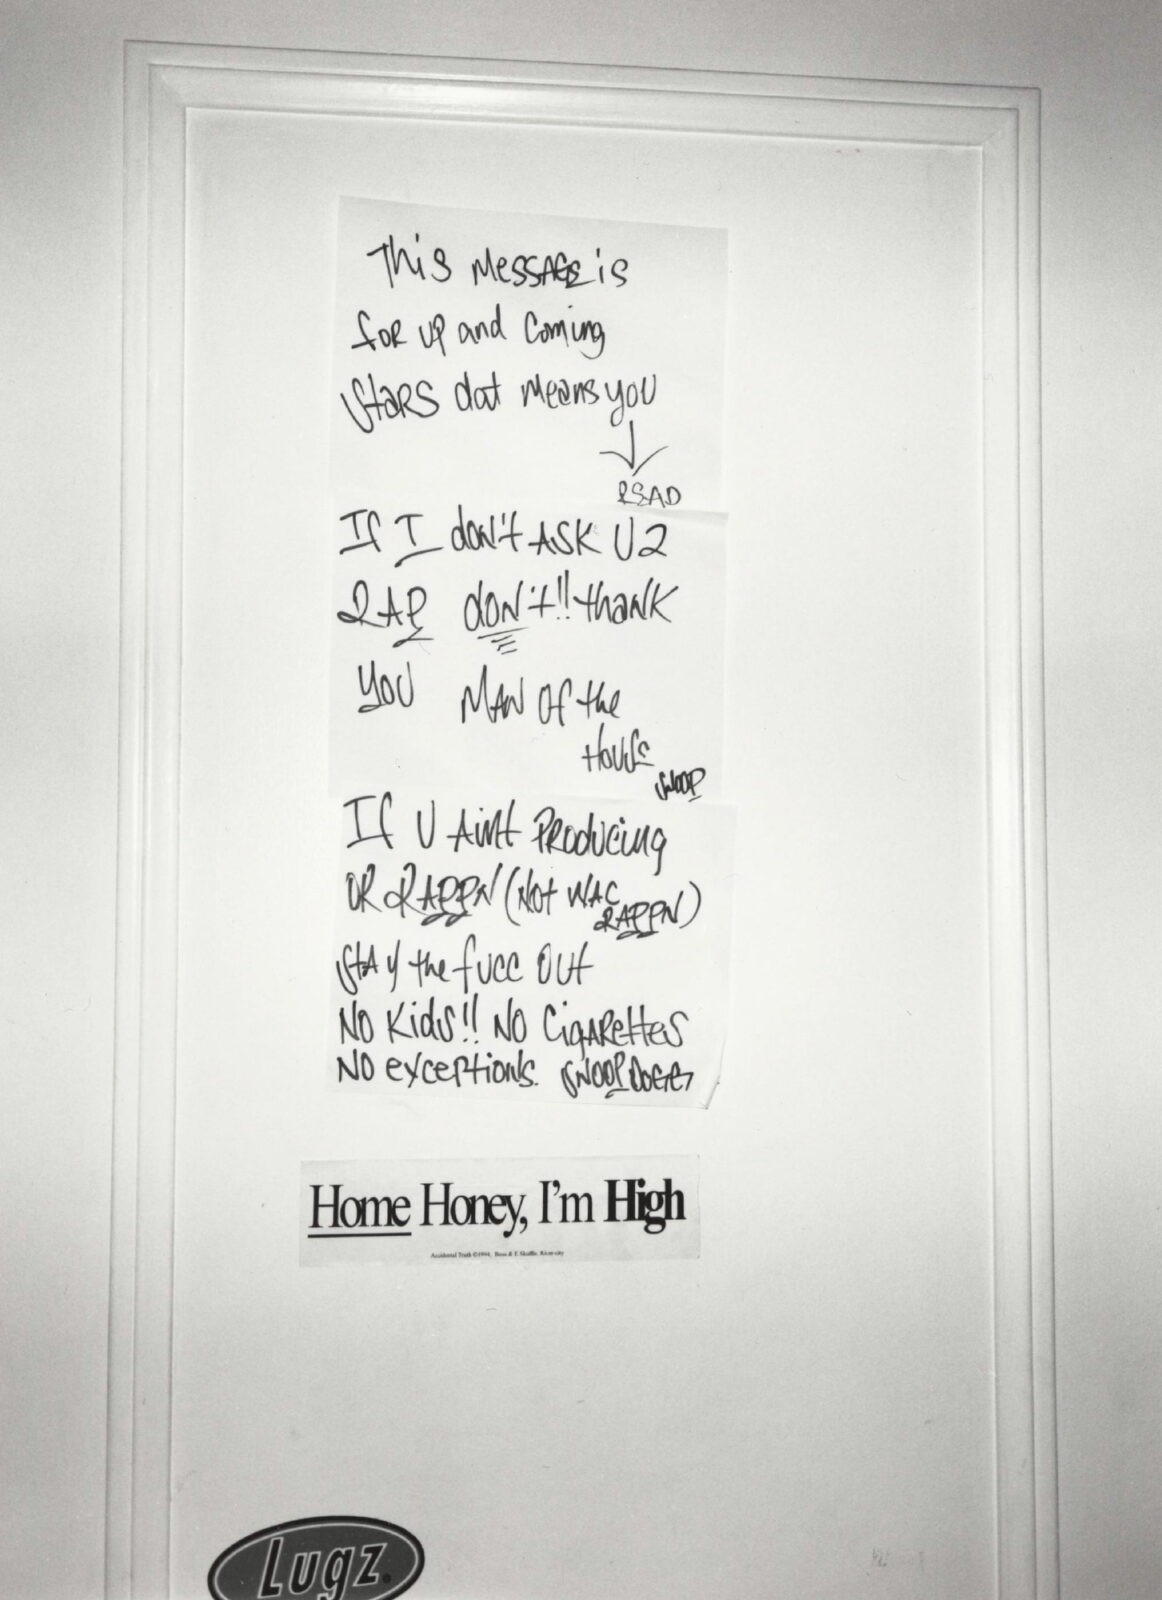 This Message is
for up and Coming
Stars dat means you
READ
If I don't ASK U 2
RAP don't!! thank
you MAN Of the
House
SNOOP
If U Aint Producing
OR RAPPN (Not WAC
RAPPN)
Stay the fucc Out
No Kids!! NO CigARettes
NO exceptions. SNOOP DOGG
Home Honey, I'm High
Accidental Truth ©1994,
Lugz